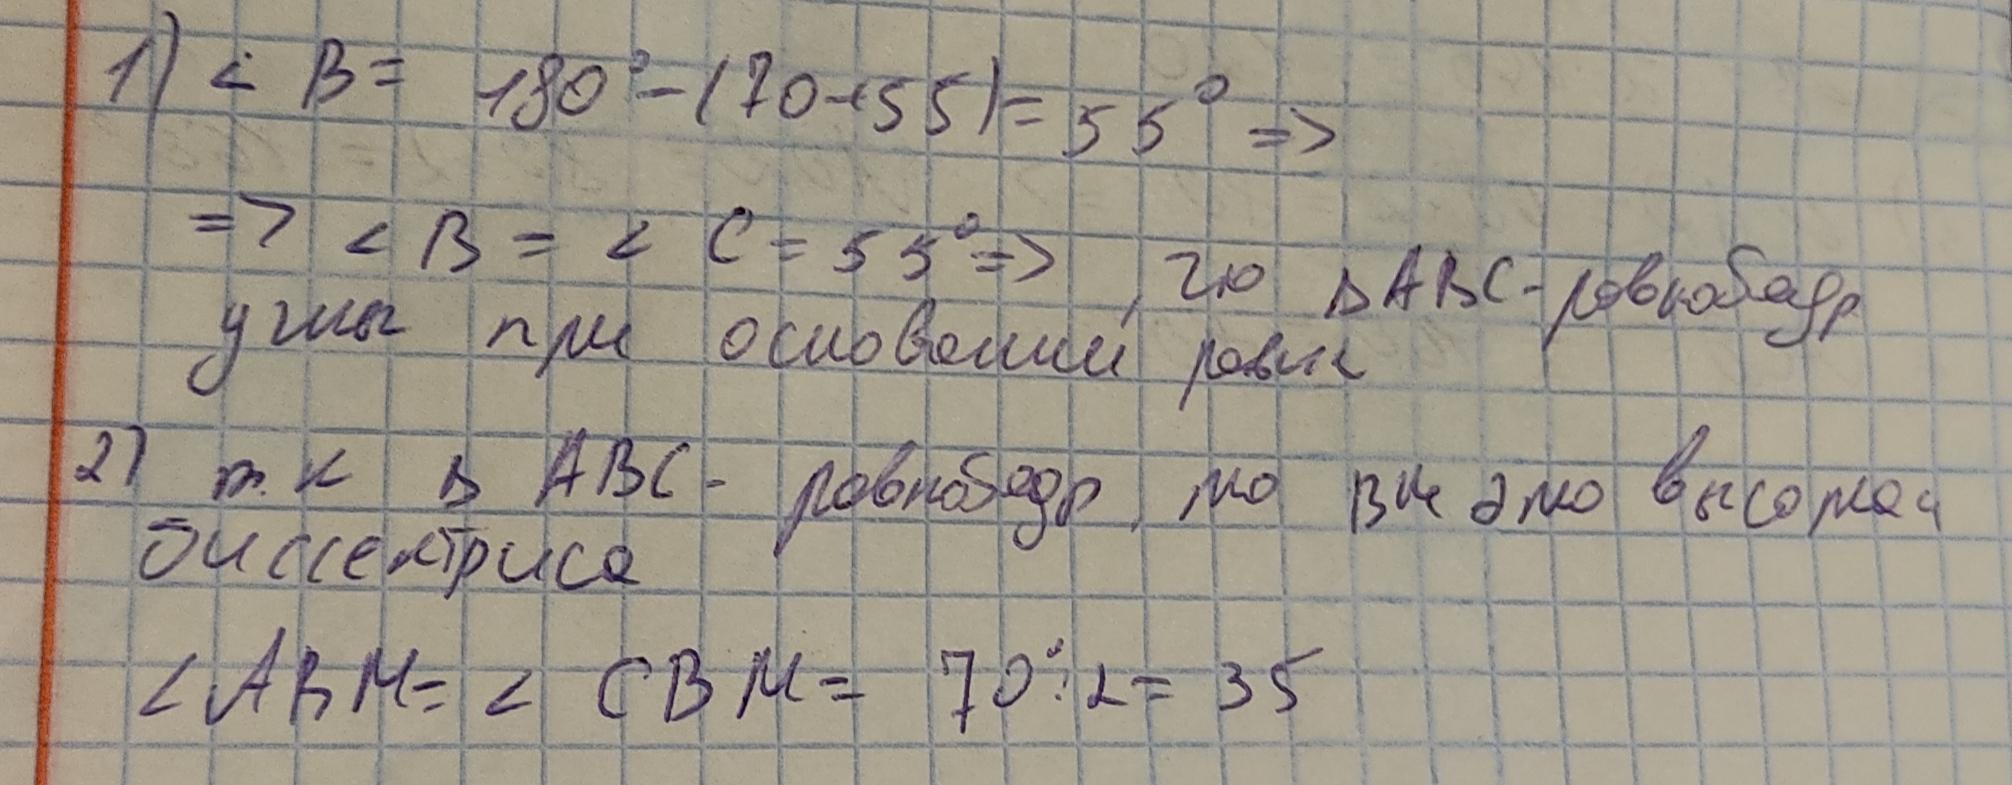 1) < B = 180° - (70+55) = 55° =>
=> < B = < C = 55° => , что ΔABC - равнобедр
углы при основании равны
2) т.к Δ ABC - равнобедр, то BM это высота и
биссектриса
< ABM = < CBM = 70° : 2 = 35